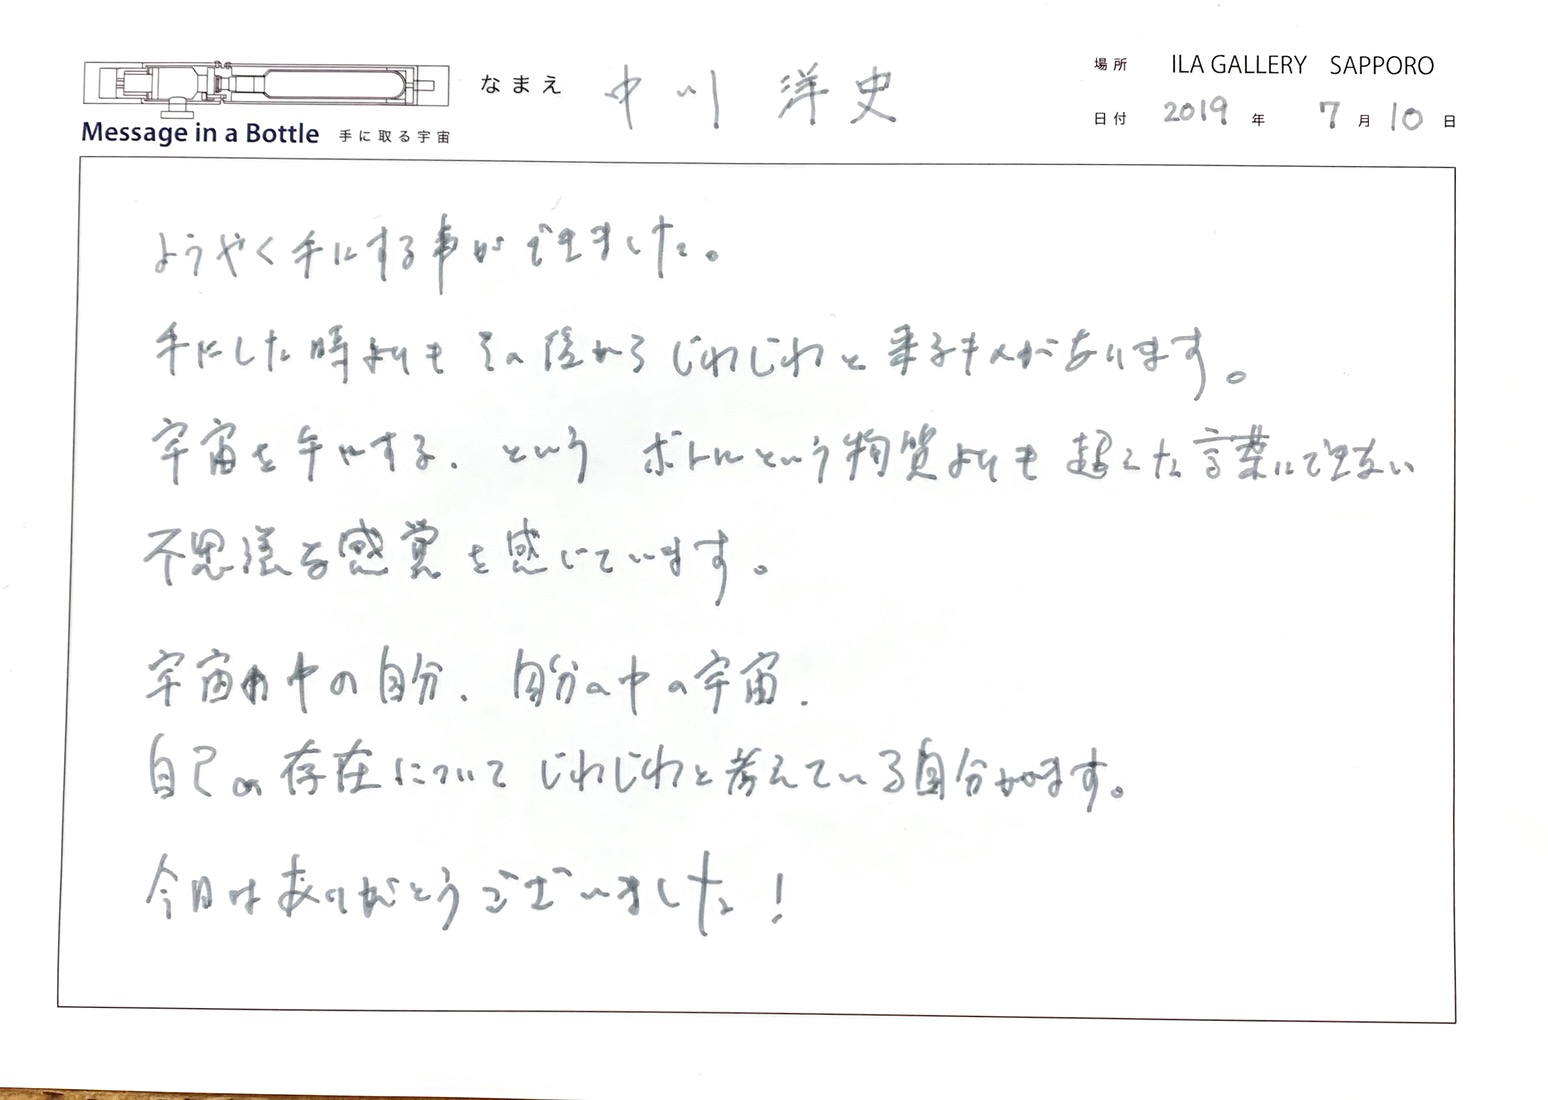 Message in a Bottle 手に取る宇宙
なまえ 中川 洋史
場所 ILA GALLERY SAPPORO
日付 2019 年 7 月 10 日
ようやく手にする事ができました。
手にした時よりもその後からじわじわと来るものがあります。
宇宙を手にする、という ボトルという物質よりも超えた言葉にできない
不思議な感覚を感じています。
宇宙の中の自分、自分の中の宇宙、
自己の存在についてじわじわと考えている自分がいます。
今日はありがとうございました!